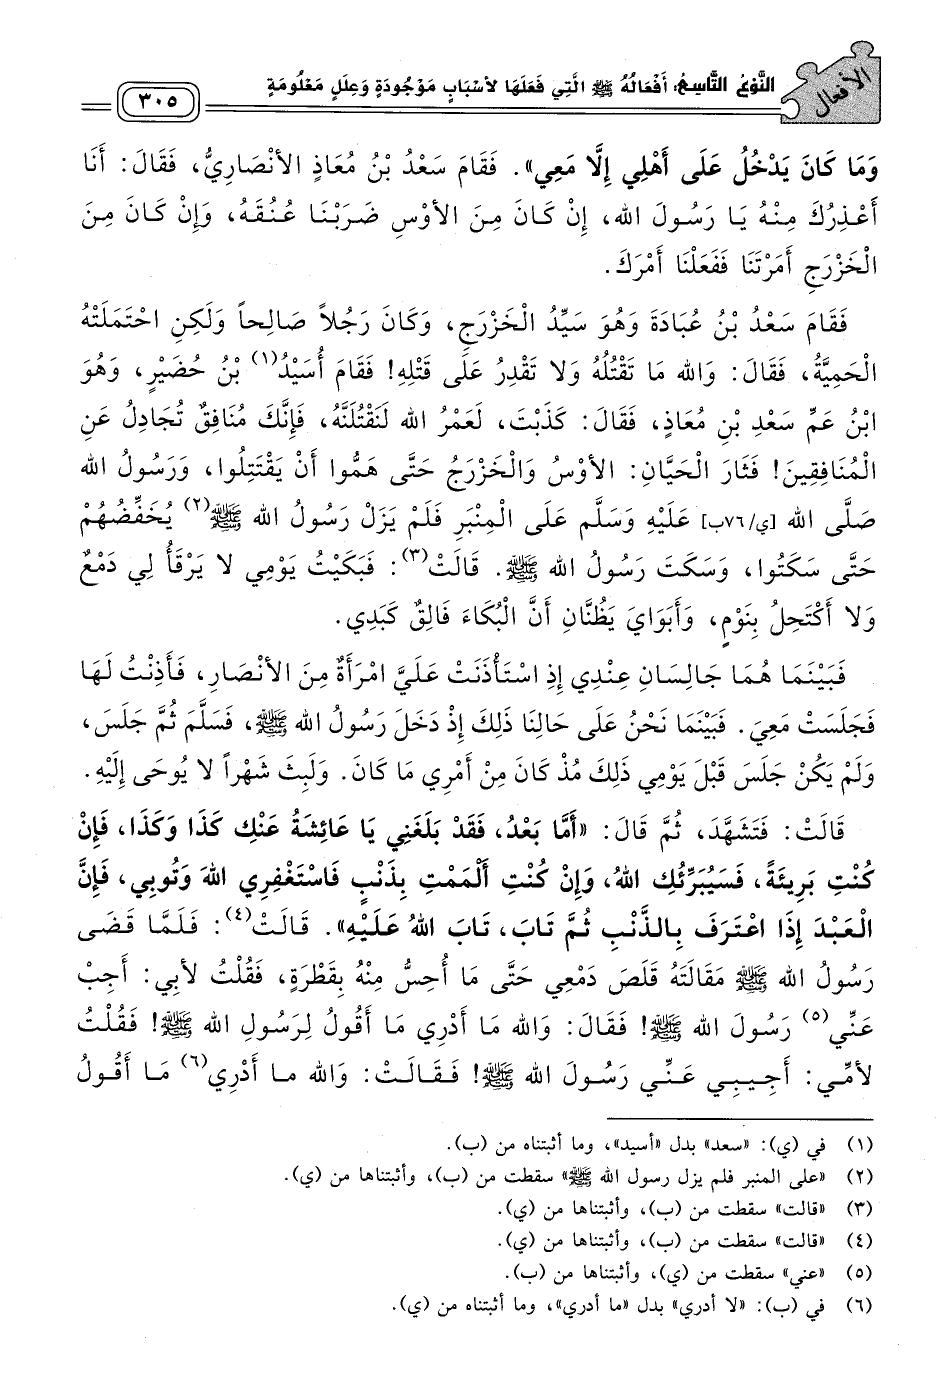 الأفعال
النَّوْعُ التَّاسِعُ: أَفْعَالُهُ ﷺ الَّتِي فَعَلَهَا لأَسْبَابٍ مَوْجُودَةٍ وَعِلَلٍ مَعْلُومَةٍ
٣٠٥
وَمَا كَانَ يَدْخُلُ عَلَى أَهْلِي إِلَّا مَعِي». فَقَامَ سَعْدُ بْنُ مُعَاذٍ الأَنْصَارِيُّ، فَقَالَ: أَنَا
أَعْذِرُكَ مِنْهُ يَا رَسُولَ الله، إِنْ كَانَ مِنَ الأَوْسِ ضَرَبْنَا عُنُقَهُ، وَإِنْ كَانَ مِنَ
الْخَزْرَجِ أَمَرْتَنَا فَفَعَلْنَا أَمْرَكَ.
فَقَامَ سَعْدُ بْنُ عُبَادَةَ وَهُوَ سَيِّدُ الْخَزْرَجِ، وَكَانَ رَجُلاً صَالِحاً وَلَكِنِ احْتَمَلَتْهُ
الْحَمِيَّةُ، فَقَالَ: وَالله مَا تَقْتُلُهُ وَلا تَقْدِرُ عَلَى قَتْلِهِ! فَقَامَ أُسَيْدُ(١) بْنُ حُضَيْرٍ، وَهُوَ
ابْنُ عَمِّ سَعْدِ بْنِ مُعَاذٍ، فَقَالَ: كَذَبْتَ، لَعَمْرُ الله لَنَقْتُلَنَّهُ، فَإِنَّكَ مُنَافِقٌ تُجَادِلُ عَنِ
الْمُنَافِقِينَ! فَثَارَ الْحَيَّانِ: الأَوْسُ وَالْخَزْرَجُ حَتَّى هَمُّوا أَنْ يَقْتَتِلُوا، وَرَسُولُ الله
صَلَّى الله [ي/٧٦ب] عَلَيْهِ وَسَلَّم عَلَى الْمِنْبَرِ فَلَمْ يَزَلْ رَسُولُ الله ﷺ(٢) يُخَفِّضُهُمْ
حَتَّى سَكَتُوا، وَسَكَتَ رَسُولُ الله ﷺ. قَالَتْ(٣): فَبَكَيْتُ يَوْمِي لا يَرْقَأُ لِي دَمْعٌ
وَلا أَكْتَحِلُ بِنَوْمٍ، وَأَبَوَايَ يَظُنَّانِ أَنَّ الْبُكَاءَ فَالِقٌ كَبَدِي.
فَبَيْنَمَا هُمَا جَالِسَانِ عِنْدِي إِذِ اسْتَأْذَنَتْ عَلَيَّ امْرَأَةٌ مِنَ الأَنْصَارِ، فَأَذِنْتُ لَهَا
فَجَلَسَتْ مَعِيَ. فَبَيْنَمَا نَحْنُ عَلَى حَالِنَا ذَلِكَ إِذْ دَخَلَ رَسُولُ الله ﷺ، فَسَلَّمَ ثُمَّ جَلَسَ،
وَلَمْ يَكُنْ جَلَسَ قَبْلَ يَوْمِي ذَلِكَ مُذْ كَانَ مِنْ أَمْرِي مَا كَانَ. وَلَبِثَ شَهْراً لا يُوحَى إِلَيْهِ.
قَالَتْ: فَتَشَهَّدَ، ثُمَّ قَالَ: «أَمَّا بَعْدُ، فَقَدْ بَلَغَنِي يَا عَائِشَةُ عَنْكِ كَذَا وَكَذَا، فَإِنْ
كُنْتِ بَرِيئَةً، فَسَيُبَرِّئُكِ اللهُ، وَإِنْ كُنْتِ أَلْمَمْتِ بِذَنْبٍ فَاسْتَغْفِرِي اللهَ وَتُوبِي، فَإِنَّ
الْعَبْدَ إِذَا اعْتَرَفَ بِالذَّنْبِ ثُمَّ تَابَ، تَابَ اللهُ عَلَيْهِ». قَالَتْ(٤): فَلَمَّا قَضَى
رَسُولُ الله ﷺ مَقَالَتَهُ قَلَصَ دَمْعِي حَتَّى مَا أُحِسُّ مِنْهُ بِقَطْرَةٍ، فَقُلْتُ لأَبِي: أَجِبْ
عَنِّي(٥) رَسُولَ الله ﷺ! فَقَالَ: وَالله مَا أَدْرِي مَا أَقُولُ لِرَسُولِ الله ﷺ! فَقُلْتُ
لأُمِّي: أَجِيبِي عَنِّي رَسُولَ الله ﷺ! فَقَالَتْ: وَالله ما أَدْرِي(٦) مَا أَقُولُ
(١) في (ي): «سعد» بدل «أسيد»، وما أثبتناه من (ب).
(٢) «على المنبر فلم يزل رسول الله ﷺ» سقطت من (ب)، وأثبتناها من (ي).
(٣) «قالت» سقطت من (ب)، وأثبتناها من (ي).
(٤) «قالت» سقطت من (ب)، وأثبتناها من (ي).
(٥) «عني» سقطت من (ي)، وأثبتناها من (ب).
(٦) في (ب): «لا أدري» بدل «ما أدري»، وما أثبتناه من (ي).